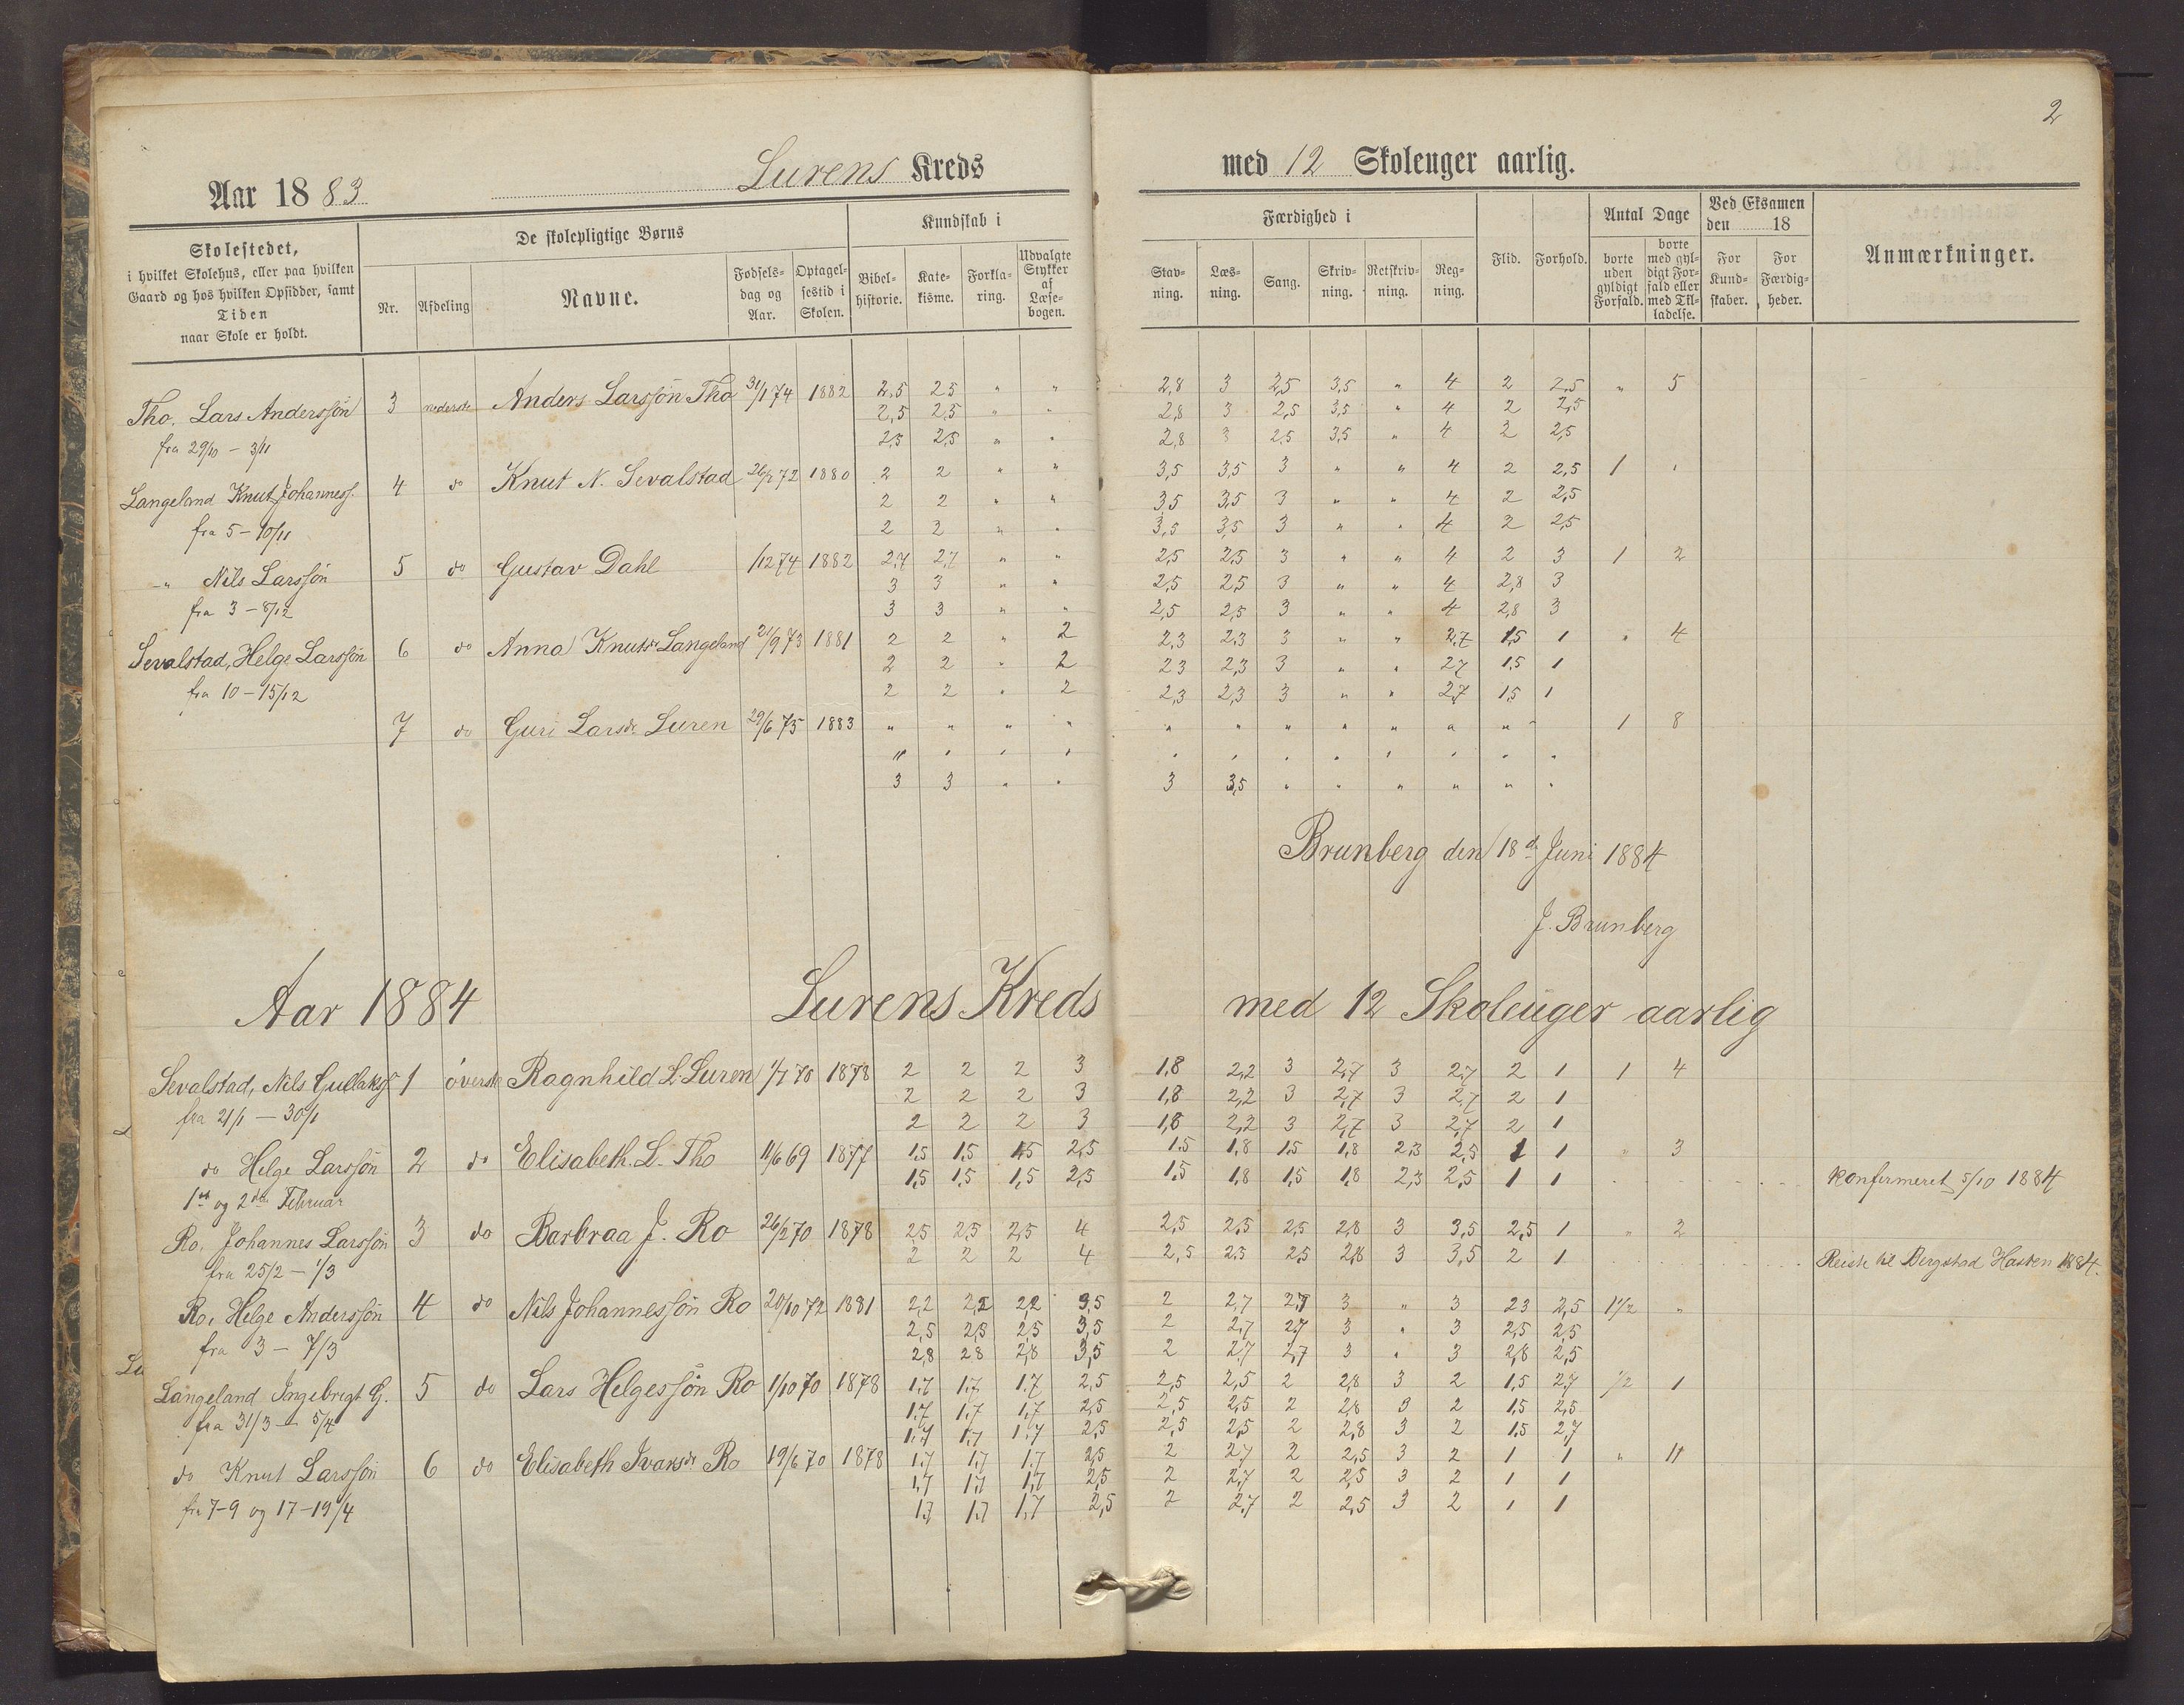 2
Aar 1883 Lurens Kreds med 12 Skoleuger aarlig.
Skolestedet,
i hvilket Skolehus, eller paa hvilken
Gaard og hos hvilken Opsidder, samt
Tiden
naar Skole er holdt.
De skolepligtige Børns
Nr.
Afdeling
Navne.
Fødsels-
dag og
Aar.
Optagel-
sestid i
Skolen.
Kundskab i
Bibel-
historie.
Kate-
kisme.
Forkla-
ring.
Udvalgte
Stykker
af
Læse-
bogen.
Færdighed i
Stav-
ning.
Læs-
ning.
Sang.
Skriv-
ning.
Retskriv-
ning.
Reg-
ning.
Flid.
Forhold.
Antal Dage
borte
uden
gyldigt
Forfald.
borte
med gyl-
digt For-
fald eller
med Til-
ladelse.
Ved Eksamen
den 18
For
Kund-
skaber.
For
Færdig-
heder.
Anmærkninger.
Tho, Lars Anderssön 3 nederste Anders Larssön Tho 31/1 74 1882 2,5 2,5 " " 2,8 3 2,5 3,5 " 4 2 2,5 " 5
2,5 2,5 " " 2,8 3 2,5 3,5 " 4 2 2,5
fra 29/10 - 3/11 2,5 2,5 " " 2,8 3 2,5 3,5 " 4 2 2,5
Langeland Knut Johanness. 4 do Knut N. Sevalstad 26/2 72 1880 2 2 " " 3,5 3,5 3 " " 4 2 2,5 1 "
2 2 " " 3,5 3,5 3 " " 4 2 2,5
fra 5 - 10/11 2 2 " " 3,5 3,5 3 " " 4 2 2,5
" Nils Larssön 5 do Gustav Dahl /12 74 1882 2,7 2,7 " " 2,5 2,5 3 " " 4 2 3 1 2
3 3 " " 2,5 2,5 3 " " 4 2,8 3
fra 3 - 8/12 3 3 " " 2,5 2,5 3 " " 4 2,8 3
Sevalstad, Helge Larssön 6 do Anna Knutsdr Langeland 21/9 73 1881 2 2 " 2 2,3 2,3 3 " " 2,7 1,5 1 " 4
2 2 " 2 2,3 2,3 3 " " 2,7 1,5 1
fra 10 - 15/12 2 2 " 2 2,3 2,3 3 " " 2,7 1,5 1
7 do Guri Larsdr Luren 29/6 75 1883 " " " " " " " " " " " " 1 8
" " " " " " " " " " " "
3 3 " " 3 3,5 " " " " " "
Brunberg den 18de Juni 1884
J. Brunberg
Aar 1884 Lurens Kreds med 12 Skoleuger aarlig
Sevalstad, Nils Gullakss. 1 överste Ragnhild L Luren 1/7 70 1878 2 2 2 3 1,8 2,2 3 2,7 3 2,7 2 1 1 4
2 2 2 3 1,8 2,2 3 2,7 3 2,7 2 1
fra 21/1 - 30/1 2 2 2 3 1,8 2,2 3 2,7 3 2,7 2 1
do Helge Larssön 2 do Elisabeth. L. Tho 11/6 69 1877 1,5 1,5 1,5 2,5 1,5 1,8 1,5 1,8 2,3 2,5 1 1 " 3
1ste og 2den Februar 1,5 1,5 1,5 2,5 1,5 1,8 1,5 1,8 2,3 2,5 1 1 Konfirmeret 5/10 1884
Ro, Johannes Larssön 3 do Barbraa J. Ro 26/2 70 1878 2,5 2,5 2,5 4 2,5 2,5 2,5 2,8 3 3,5 2,5 1 " 2
fra 25/2 - 1/3 2 2 2 4 2,5 2,5 2,5 2,8 3 3,5 2 1 Reiste til Bergstad Hösten 1884.
Ro, Helge Anderssön 4 do Nils Johannessön Ro 20/10 72 1881 2,2 2,2 2,2 3,5 2 2,7 2,7 3 " 3 2,3 2,5 1 1/2 "
2,5 2,5 2,5 3,5 2 2,7 2,7 3 " 3 2,5 2,5
fra 3 - 7/3 2,8 2,8 2,8 3,5 2 2,7 2,7 3 " 3 2,8 2,5
Langeland Ingebrigt G. 5 do Lars Helgessön Ro 1/10 70 1878 1,7 1,7 1,7 2,5 2,5 2,5 2 2,8 3 2 1,5 2,7 1/2 1
1,7 1,7 1,7 2,5 2,5 2,5 2 2,8 3 2 1,5 2,5
fra 31/3 - 5/4 1,7 1,7 1,7 2,5 2,5 2,5 2 2,8 3 2 1,5 2,7
do Knut Larssön 6 do Elisabeth Ivarsdr Ro 19/6 70 1878 1,7 1,7 1,7 2,5 2 2,7 2 2,5 3 2 1 1 " 11
1,7 1,7 1,7 2,5 2 2,7 2 2,5 3 2 1 1
fra 7-9 og 17-19/4 1,7 1,7 1,7 2,5 2 2,7 2 2,5 3 2 1 1